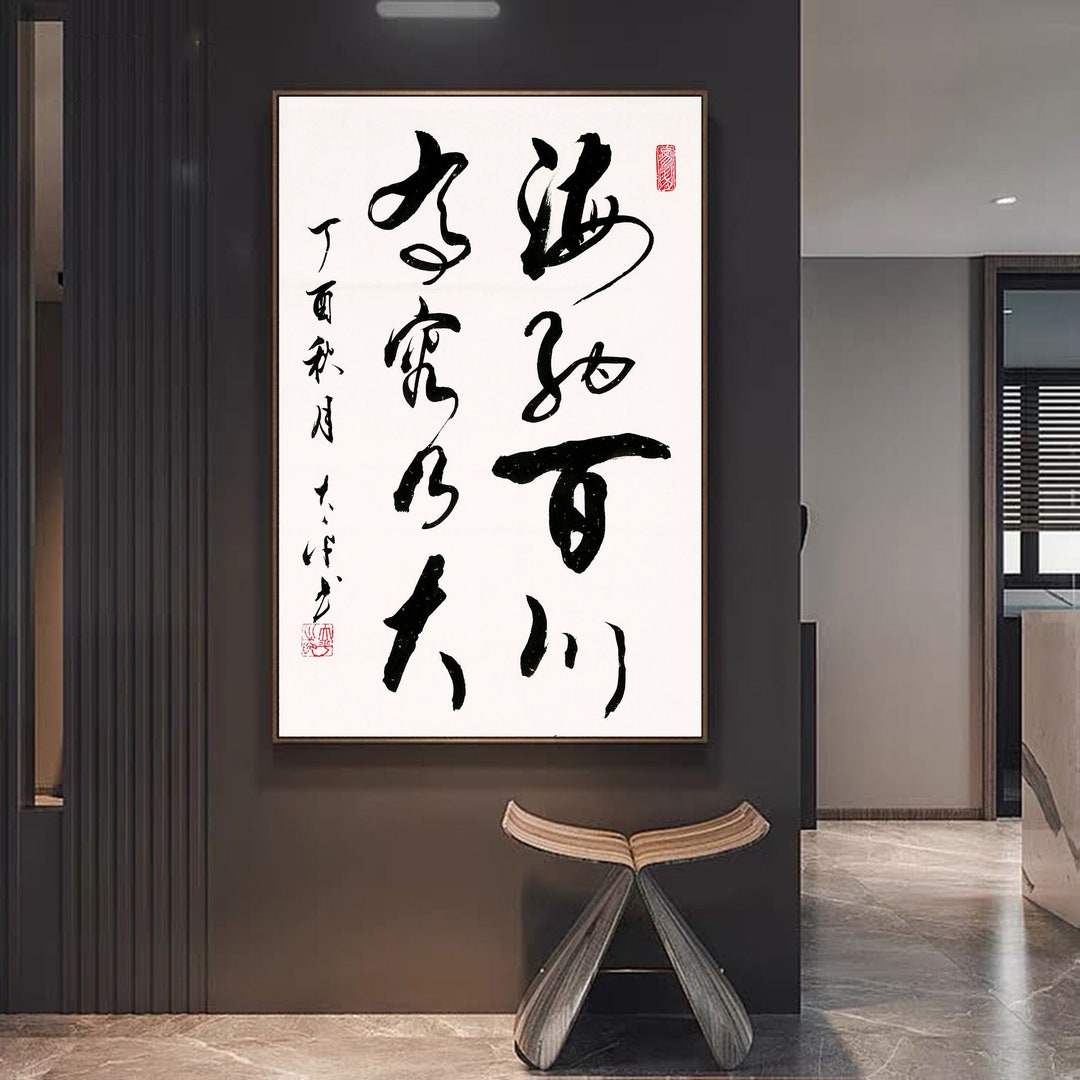 海纳百川
有容乃大
丁酉秋月